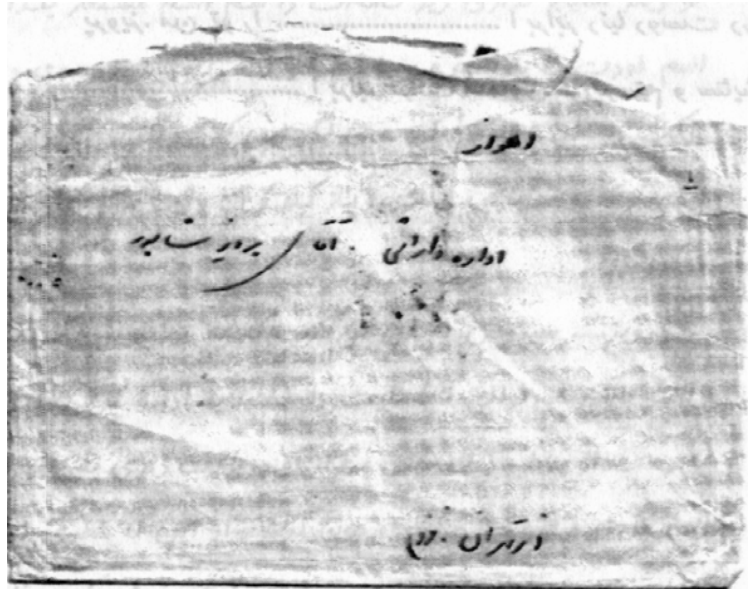 اهواز
اداره دارائی . آقای پرویز شاپور
از تهران . فروغ